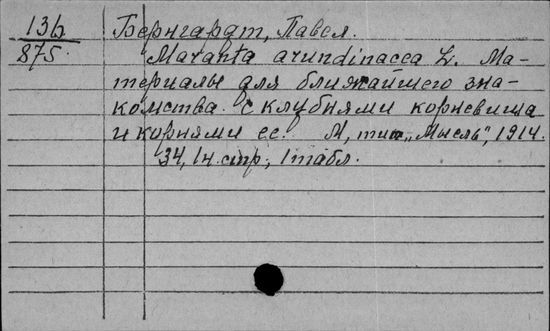 136 Бернгардт, Павел.
875. Maranta arundinacea L. Ма-
териалы для ближайшего зна-
комства с клубнями корневища
и корнями ее. М, тип. „Мысль", 1914.
34, 1н. стр., 1 табл.